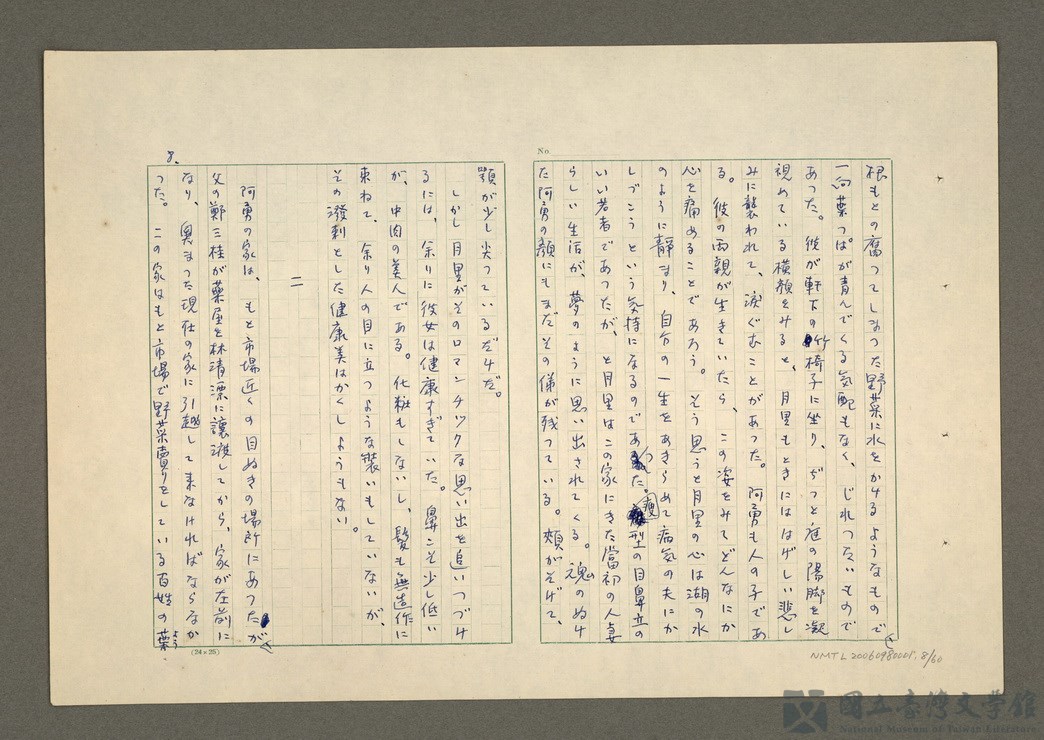 No.
根もとの腐つてしまつた野菜に水をかけるようなもので
一向葉つぱが青んでくる気配もなく、じれつたいもので
あつた。彼が軒下の竹椅子に坐り、ぢつと庭の陽脚を凝
視めている横顔をみると、月里もときにははげしい悲し
みに襲われて、涙ぐむことがあつた。阿勇も人の子であ
る。彼の両親が生きていたら、この姿をみてどんなにか
心を痛めることであろう。そう思うと月里の心は湖の水
のように静まり、自分の一生をあきらめて病気の夫にか
しづこうという気持になるのであつた。
瘦型の目鼻立の
いい若者であつたが、と月里はこの家にきた當初の人妻
らしい生活が、夢のように思い出されてくる。魂のぬけ
た阿勇の顔にもまだその俤が残つている。頬がそげて、
顎が少し尖つているだけだ。
しかし月里がそのロマンチツクな思い出を追いつづけ
るには、余りに彼女は健康すぎていた。鼻こそ少し低い
が、中肉の美人である。化粧もしないし、髪も無造作に
束ねて、余り人の目に立つような装いもしていないが、
その潑剌とした健康美はかくしようもない。
二
阿勇の家は、もと市場近くの目ぬきの場所にあつたが
父の鄭三桂が薬屋を林清漂に譲渡してから、家が左前に
なり、奥まつた現在の家に引越して来なければならなか
つた。この家はもと市場で野菜賣りをしている百姓の葉
8.
(24×25)
NMTL20060980005. 8/60
國立臺灣文學館
National Museum of Taiwan Literature